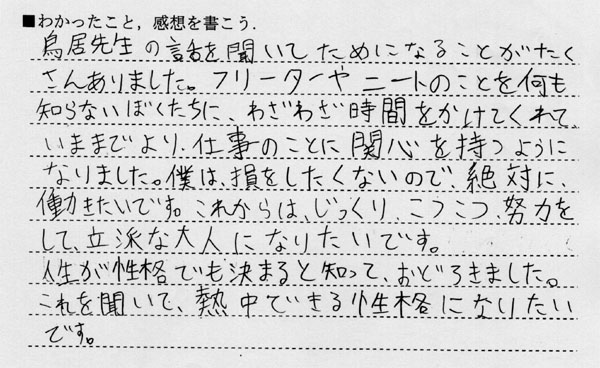 ■わかったこと，感想を書こう.
鳥居先生の話を聞いてためになることがたく
さんありました。フリーターやニートのことを何も
知らないぼくたちに、わざわざ時間をかけてくれて、
いままでより、仕事のことに関心を持つように
なりました。僕は、損をしたくないので、絶対に、
働きたいです。これからは、じっくり、こつこつ、努力を
して、立派な大人になりたいです。
人生が性格でも決まると知って、おどろきました。
これを聞いて、熱中できる性格になりたい
です。